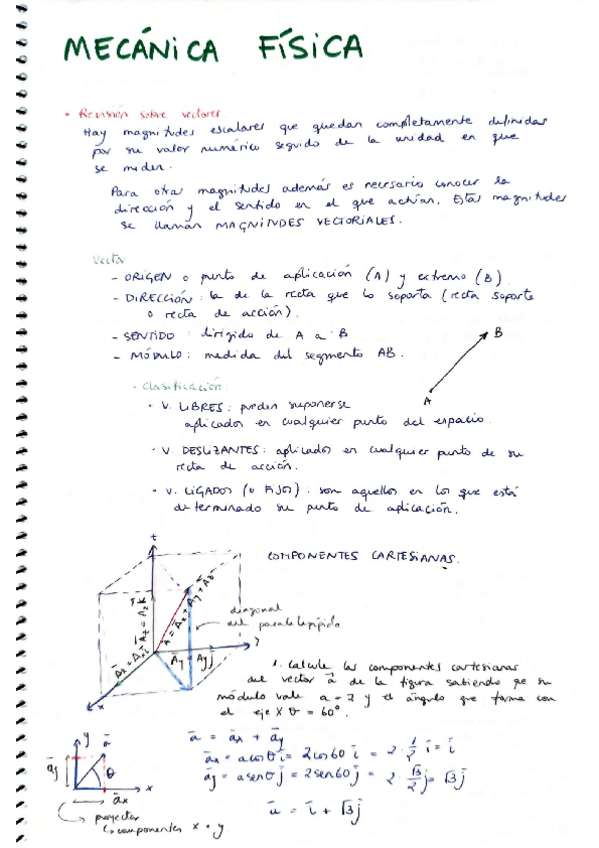 MECÁNICA FÍSICA
• Revisión sobre vectores.
Hay magnitudes escalares que quedan completamente definidas
por su valor numérico seguido de la unidad en que
se miden.
Para otras magnitudes además es necesario conocer la
dirección y el sentido en el que actúan. Estas magnitudes
se llaman MAGNITUDES VECTORIALES.
Vector
- ORIGEN o punto de aplicación (A) y extremo (B)
- DIRECCIÓN: la de la recta que lo soporta (recta soporte
o recta de acción).
- SENTIDO: dirigido de A a B
- MÓDULO: medida del segmento AB.
B
A
- Clasificación
• V. LIBRES: pueden suponerse
aplicados en cualquier punto del espacio.
• V. DESLIZANTES: aplicados en cualquier punto de su
recta de acción.
• V. LIGADOS (o FIJOS): son aquellos en los que está
determinado su punto de aplicación.
COMPONENTES CARTESIANAS.
z
Āz = Az k̄
Ā = Āx + Āy + Āz
Āx = Ax ī
Āy = Ay j̄
y
x
diagonal
del paralelepípedo
1. Calcule las componentes cartesianas
del vector ā de la figura sabiendo que su
módulo vale a = 2 y el ángulo que forma con
el eje X θ = 60°.
y
ā
āy
θ
x
āx
proyectar
componentes x e y
ā = āx + āy
āx = a cos θ ī = 2 cos 60 ī = 2 · 1/2 ī = ī
āy = a sen θ j̄ = 2 sen 60 j̄ = 2 · √3/2 j̄ = √3 j̄
ā = ī + √3 j̄